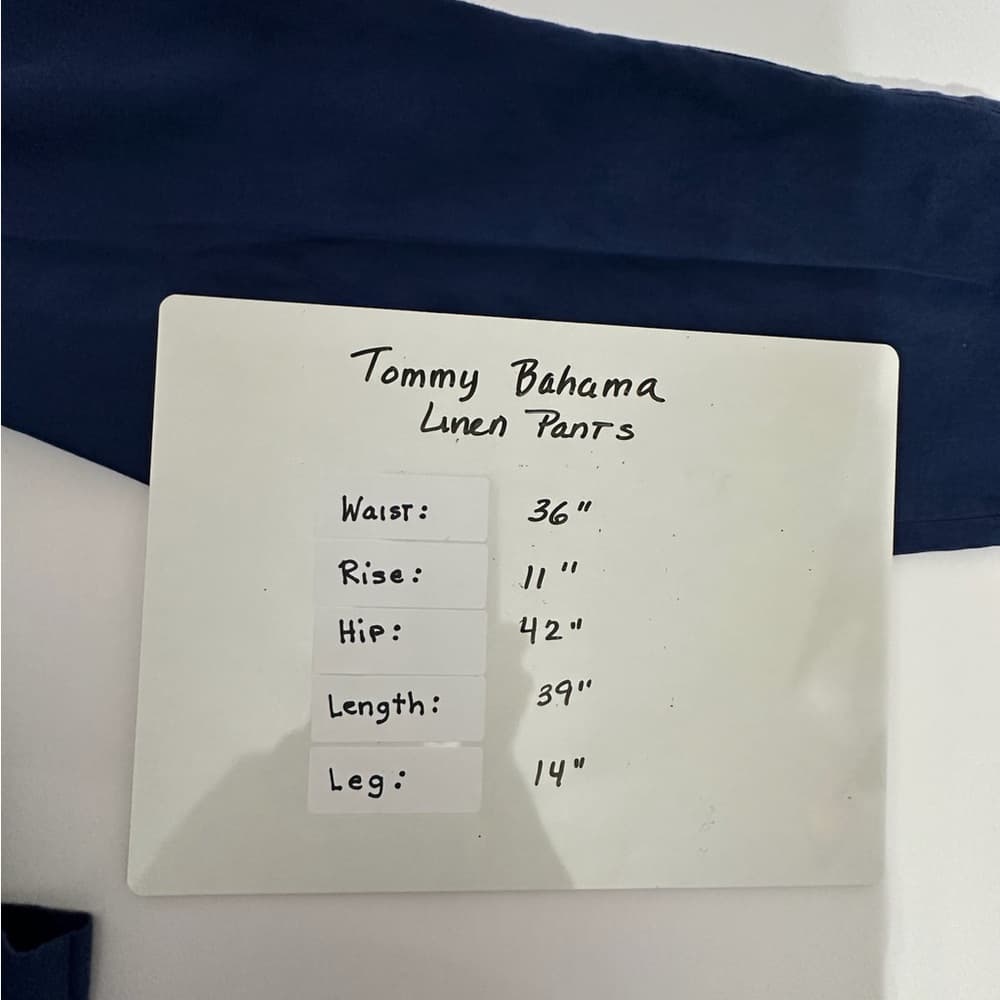 Tommy Bahama
Linen Pants
Waist: 36"
Rise: 11"
Hip: 42"
Length: 39"
Leg: 14"